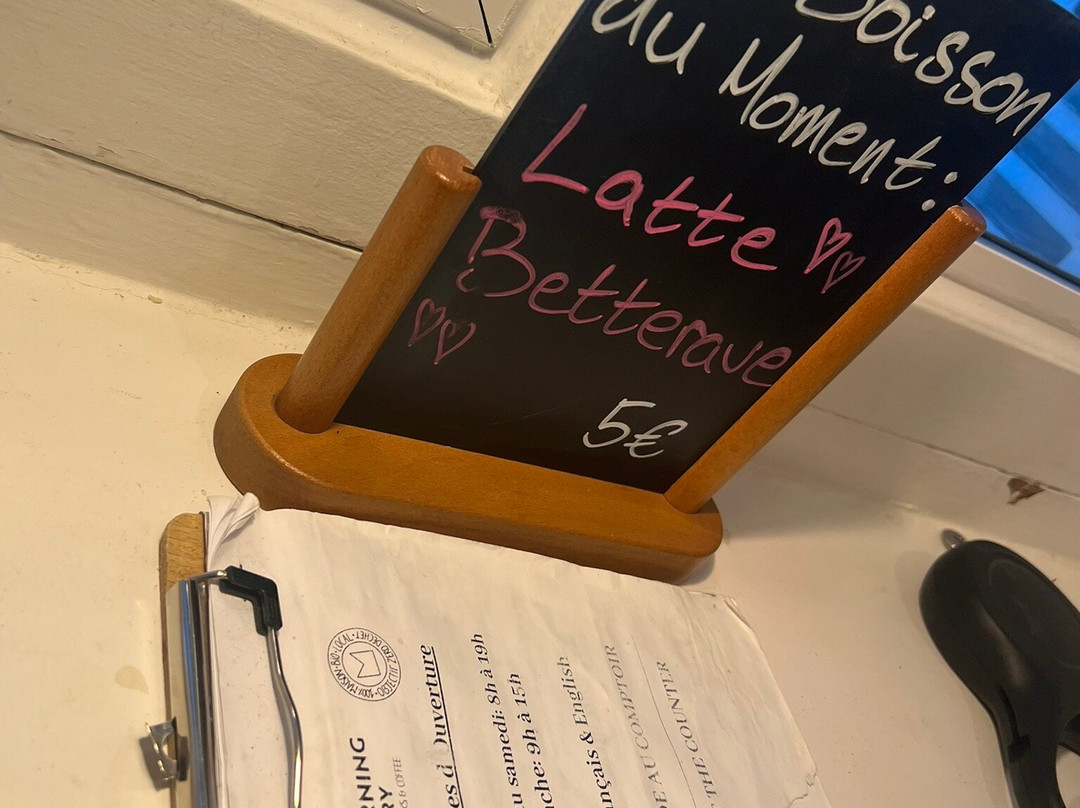 Boisson
du Moment:
Latte
Betterave
5€
100% MAISON • BIO • LOCAL • ZÉRO DÉCHET
RNING
RY
S & COFFEE
es d'Ouverture
u samedi: 8h à 19h
nche: 9h à 15h
nçais & English
E AU COMPTOIR
THE COUNTER